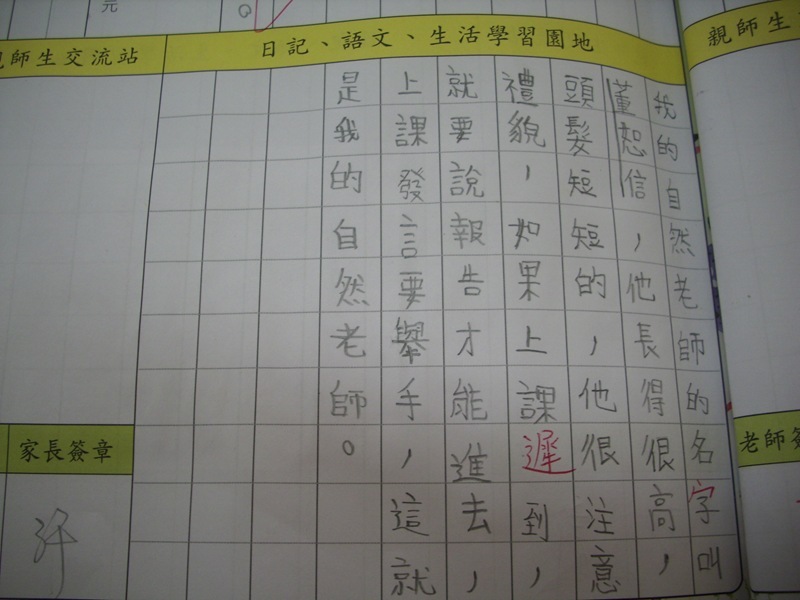 元
日記、語文、生活學習園地
親師生
我的自然老師的名字叫
董恕信，他長得很高，
頭髮短短的，他很注意
禮貌，如果上課遲到，
就要說報告才能進去，
上課發言要舉手，這就
是我的自然老師。
師生交流站
家長簽章
老師簽